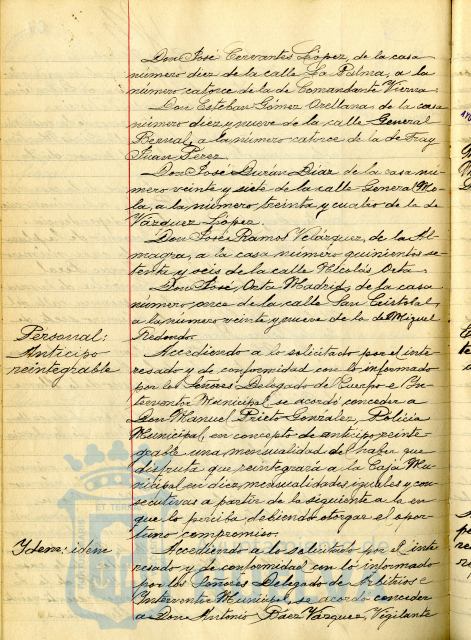 Don José Cervantes López, de la casa
número diez de la calle La Palma, a la
número catorce de la de Comandante Vierna.
Don Esteban Gómez Orellana, de la casa
número diez y nueve de la calle General
Bernal, a la número catorce de la de Fray
Juan Pérez.
Don José Durán Díaz de la casa nú-
mero veinte y siete de la calle General Mo-
la, a la número treinta y cuatro de la de
Vázquez López.
Don José Ramos Velázquez, de la Al-
magra, a la casa número quinientos se-
tenta y seis de la calle Nicolás Orta.
Don José Orta Madrid, de la casa
número once de la calle San Cristobal,
a la número veinte y nueve de la de Miguel
Redondo.
Personal:
Anticipo
reintegrable
Accediendo a lo solicitado por el inte-
resado y de conformidad con lo informado
por los Señores Delegado de Cuerpo e In-
terventor Municipal, se acordó conceder a
Don Manuel Prieto González, Policía
Municipal, en concepto de anticipo reinte-
grable una mensualidad del haber que
disfruta que reintegrará a la Caja Mu-
nicipal en diez mensualidades iguales y con-
secutivas a partir de la siguiente a la en
que lo perciba debiendo otorgar el opor-
tuno compromiso.
Idem: idem
Accediendo a lo solicitado por el inte-
resado y de conformidad con lo informado
por los Señores Delegado de Arbitrios e
Interventor Municipal, se acordó conceder
a Don Antonio Báez Vázquez, Vigilante